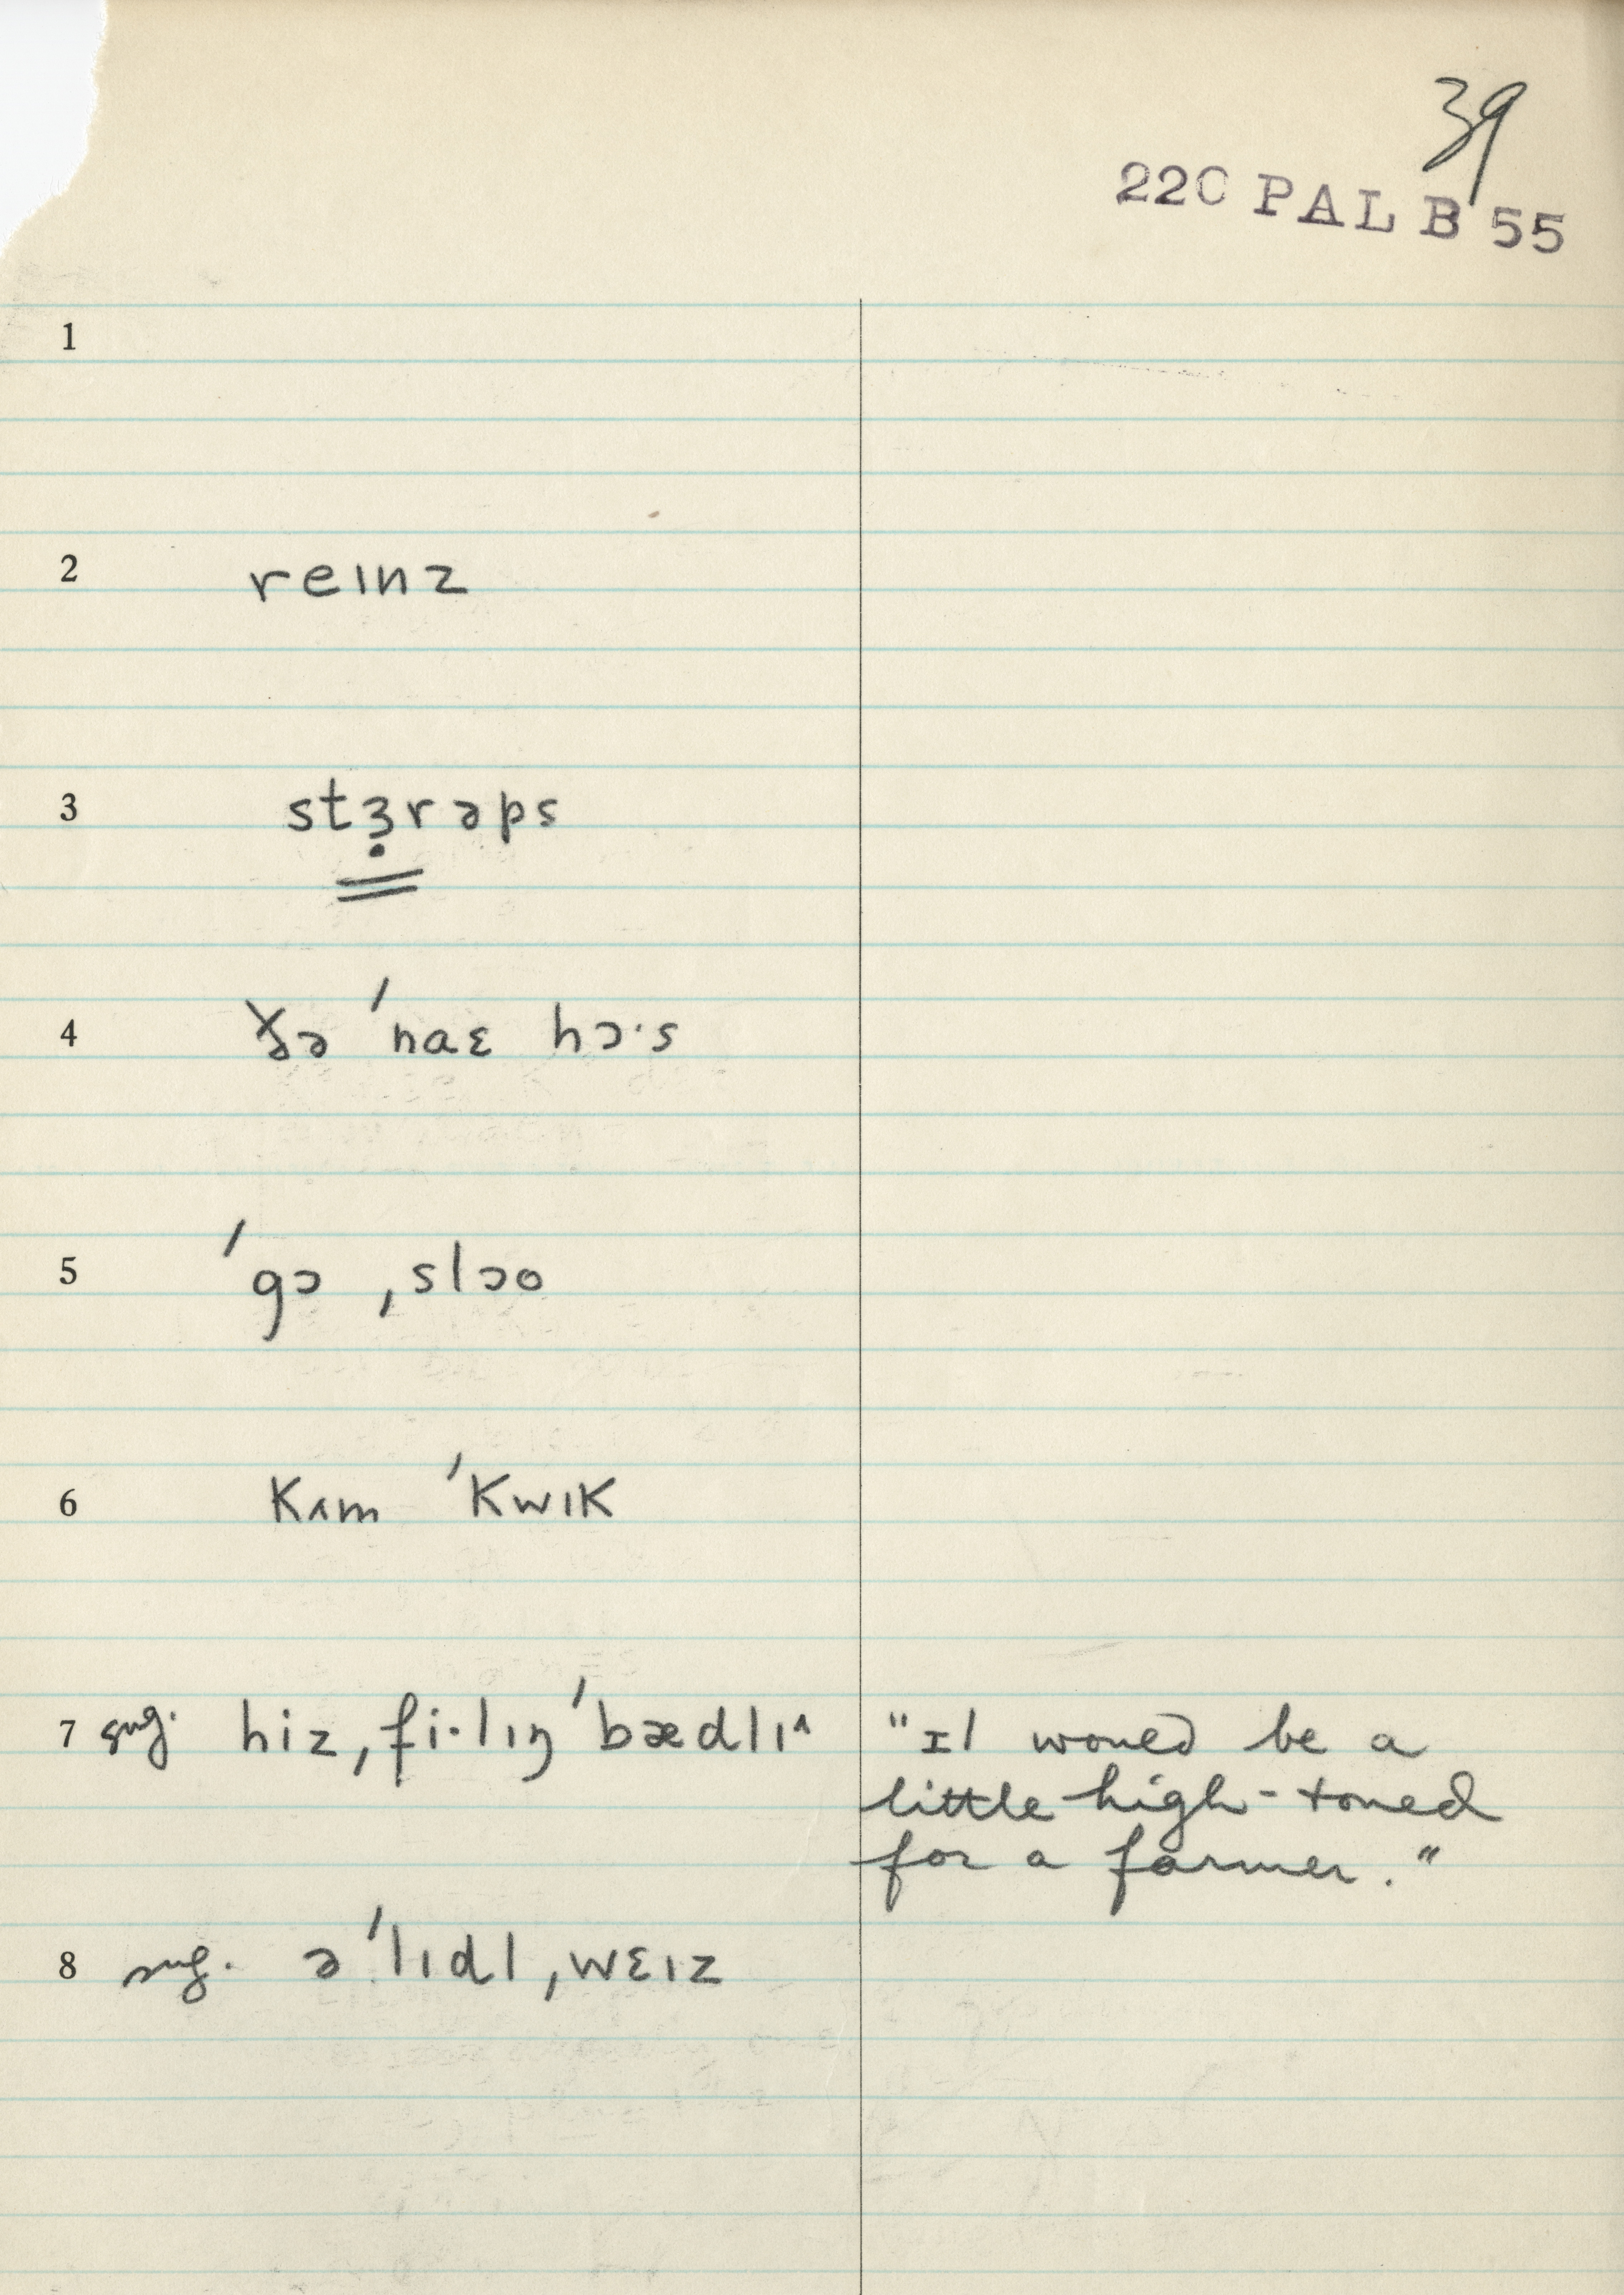 39
220 PAL B 55
1
2 reɪnz
3 stɜ̣rəps
4 ðə ˈnaɛ hɔ·s
5 ˈgɔ ˌslɔo
6 kʌm ˈkwɪk
7 sug. hiz ˌfi·lɪŋ ˈbædlɪ^ "It would be a
little high-toned
for a farmer."
8 sug. ə ˈlɪdl ˌwɛɪz